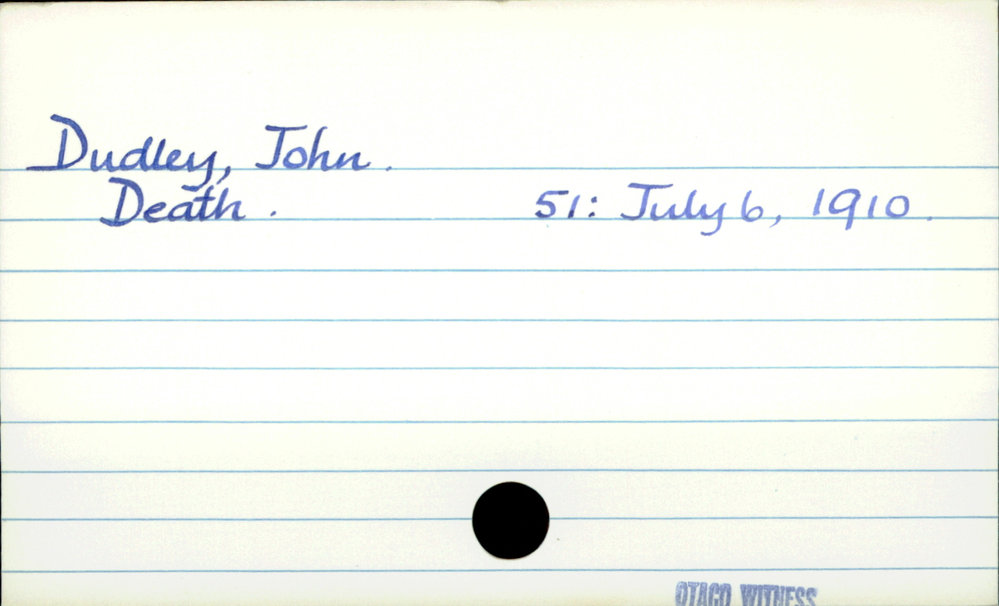 Dudley, John.
Death. 51: July 6, 1910.
OTAGO WITNESS